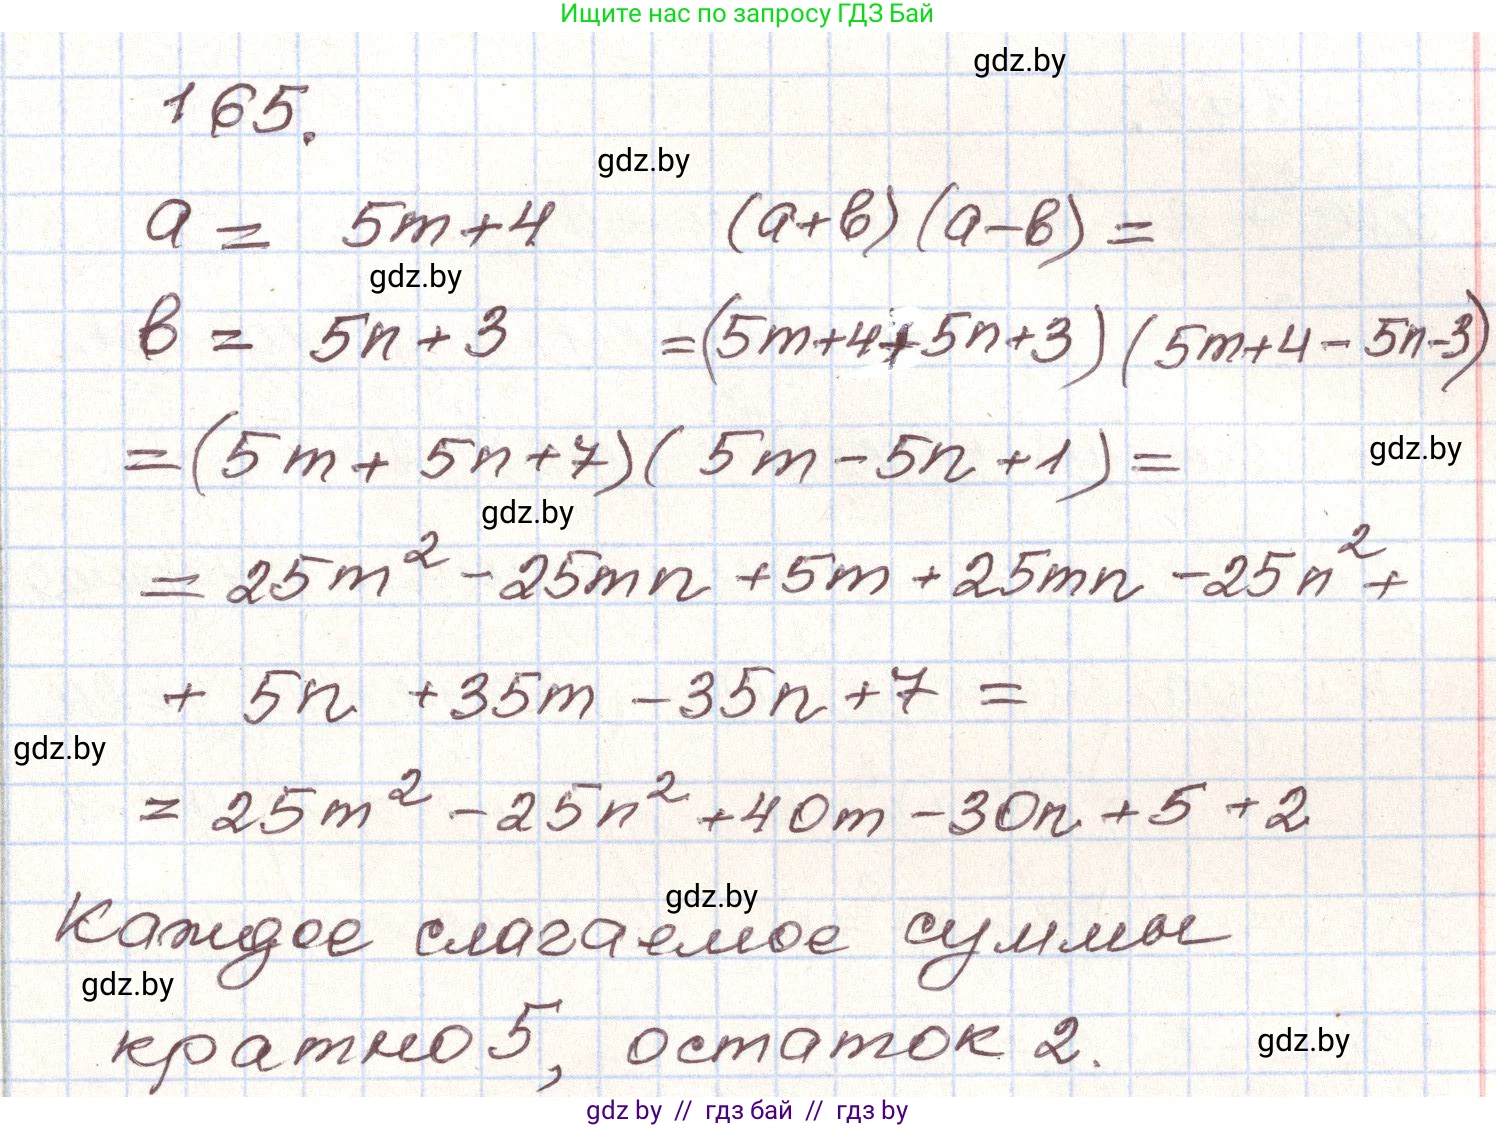 Ищите нас по запросу ГДЗ Бай
gdz.by
165.
gdz.by
a = 5m+4 (a+b)(a-b)=
gdz.by
b = 5n+3 =(5m+4+5n+3)(5m+4-5n-3)
=(5m+5n+7)(5m-5n+1)=
gdz.by
gdz.by
=25m²-25mn+5m+25mn-25n²+
+5n+35m-35n+7=
gdz.by
=25m²-25n²+40m-30n+5+2
gdz.by
Каждое слагаемое суммы
gdz.by
кратно 5, остаток 2.
gdz.by
gdz by // гдз бай // гдз by